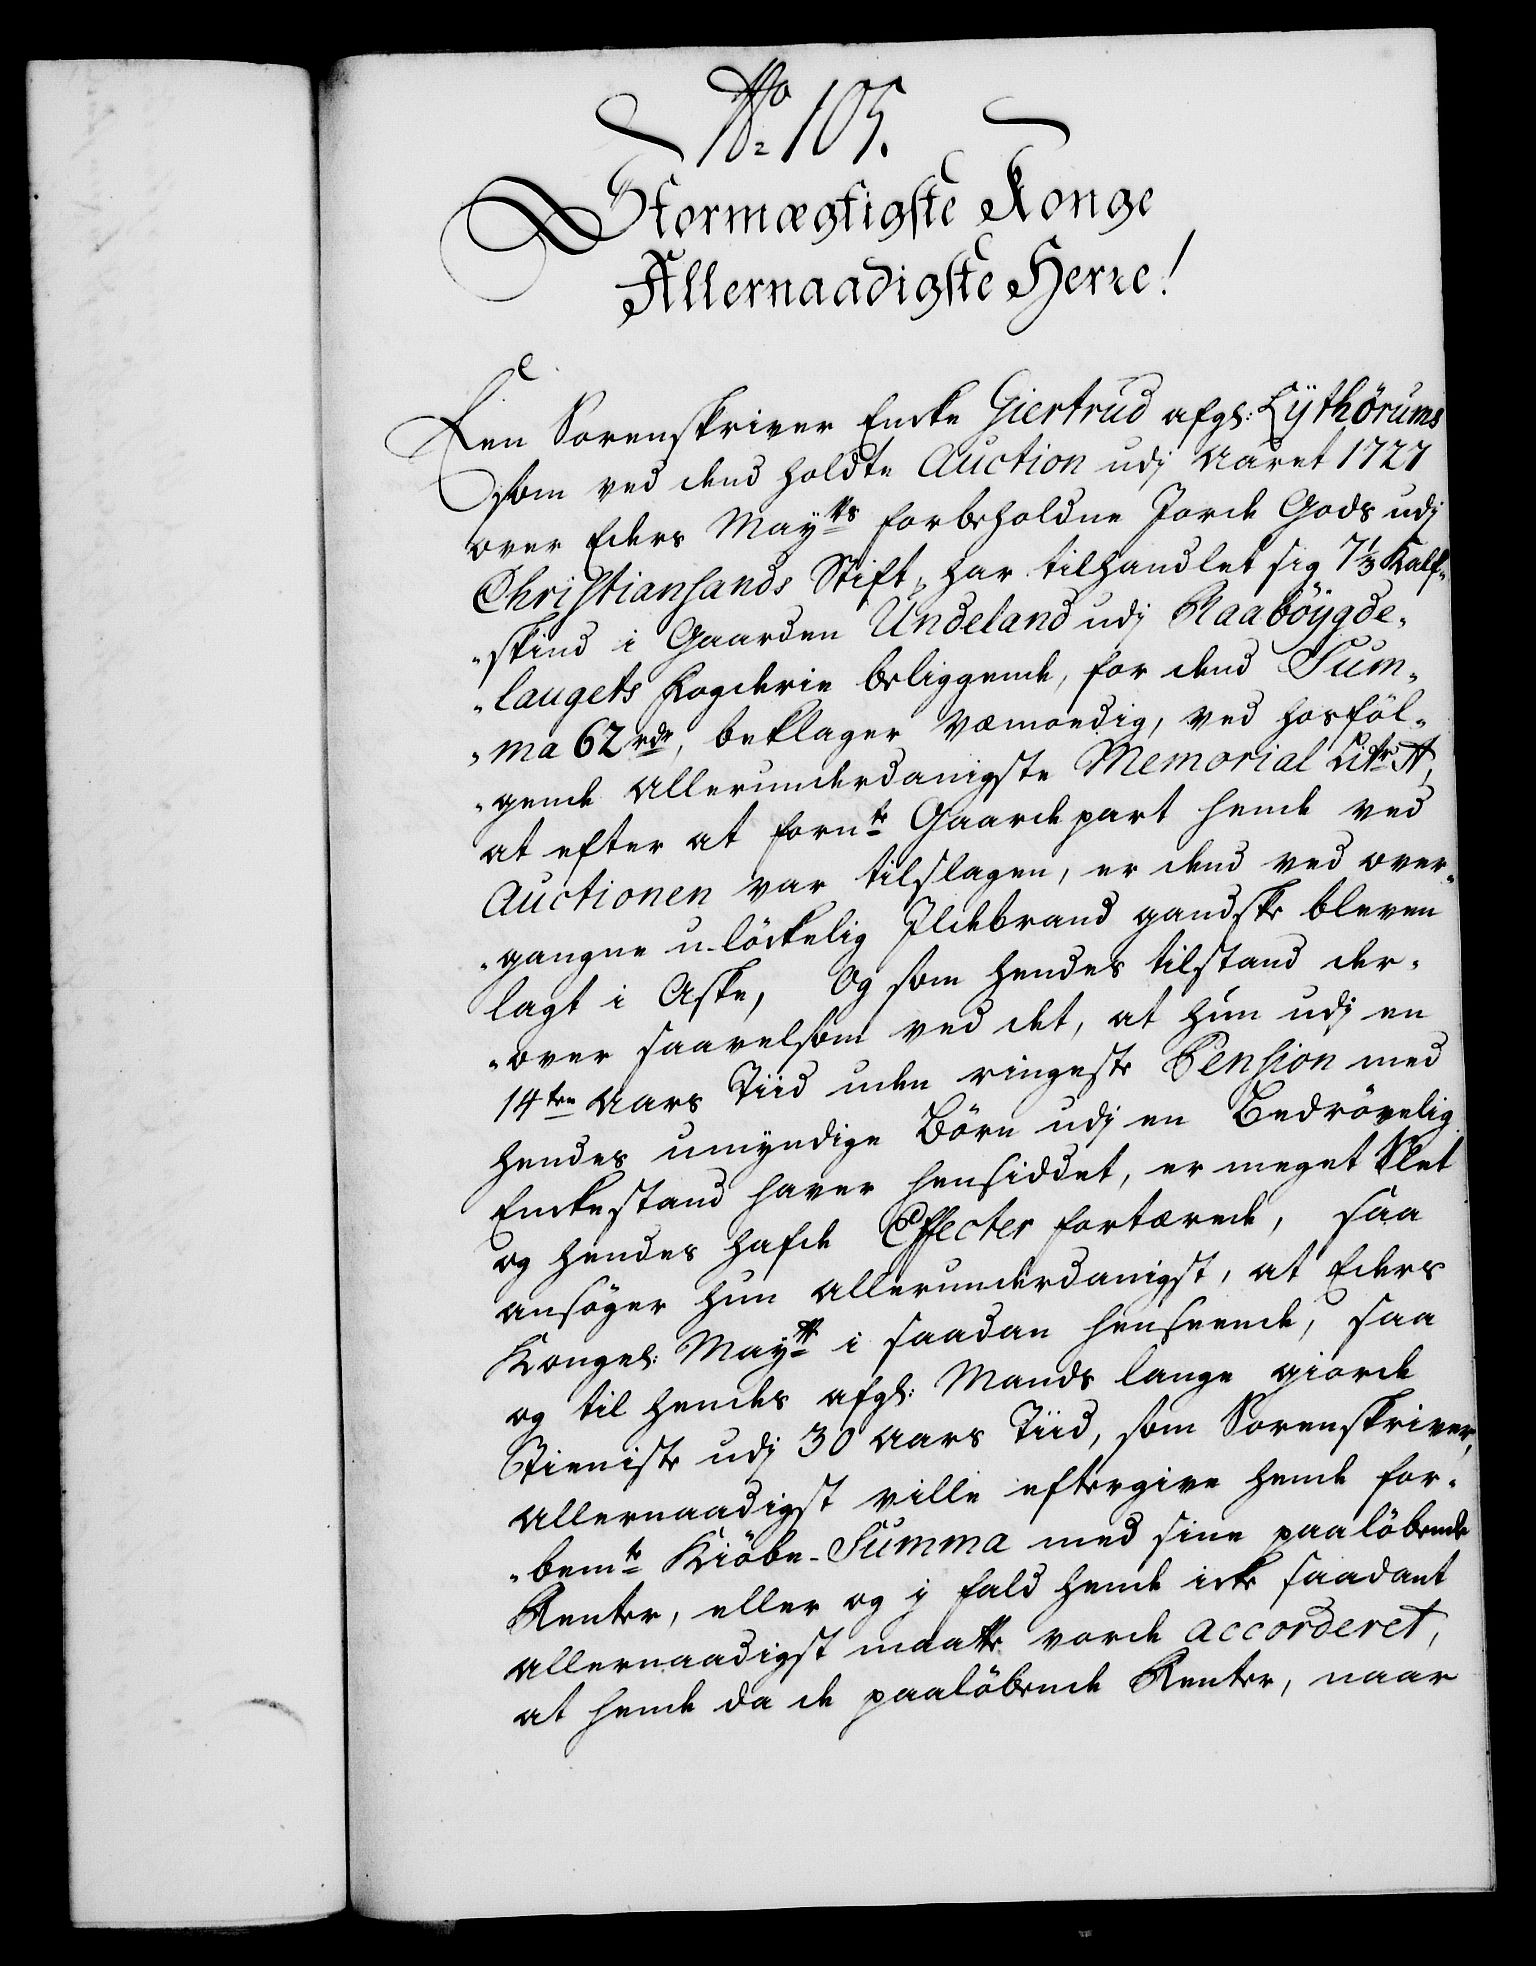 No 105.
Stormægtigste Konge
Allernaadigste Herre!
En Sorenskriver Encke Giertrud afgl: Lÿthørums
som ved dend holdte Auction udj Aaret 1727
over Eders Mayts forbeholdne Jorde Gods udj
Christiansands Stift, har tilhandlet sig 7⅓ Kalf„
„skind i Gaarden Undeland udj Raabøygde„
„laugets Fogderie beliggende, for dend Sum„
„ma 62 rdr, beklager vemoedig, ved hosføl„
„gende allerunderdanigste Memorial Litr A,
at efter at fornte Gaardepart hende ved
Auctionen var tilslagen, er dend ved over„
„gangne u-løckelig Ildebrand gandske bleven
lagt i Aske, Og som hendes tilstand der„
„over saavelsom ved det, at hun udj en
14ten Aars Tiid uden ringeste Pension med
hendes umyndige Børn udj en Bedrøvelig
Enckestand haver hensiddet, er meget Slet
og hendes hafde Effecter fortærede, saa
ansøger hun allerunderdanigst, at Eders
Kongel: Maytt i saadan henseende, saa
og til hendes afgl: Mands lange giorde
Tieniste udj 30 Aars Tiid, som Sorenskriver,
allernaadigst ville eftergive hende for„
„bemte Kiøbe-Summa med sine paaløbende
Renter, eller og j fald hende icke saadant
allernaadigst maatte vorde accorderet,
at hende da de paaløbende Renter, naar